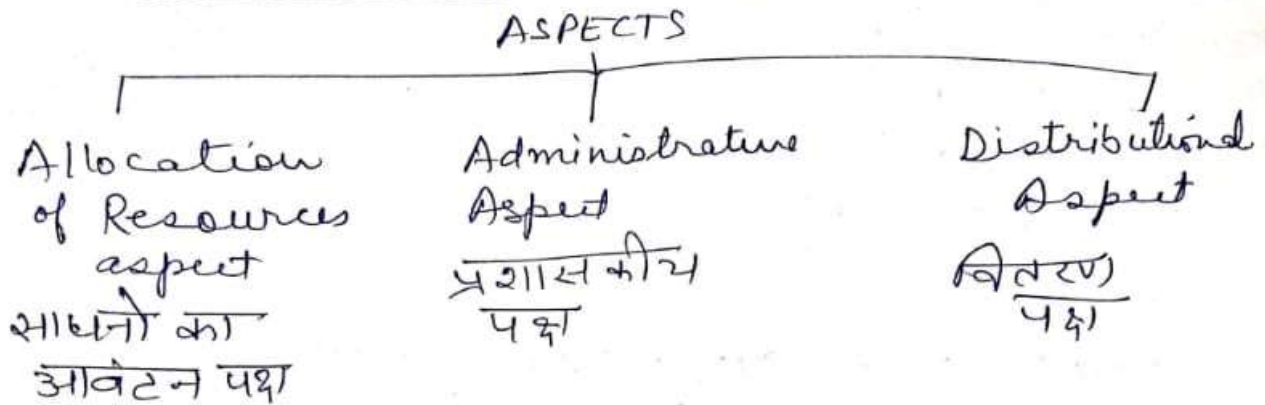 ASPECTS
Allocation
of Resources
aspect
साधनो का
आवंटन पक्ष
Administrative
Aspect
प्रशासकीय
पक्ष
Distributional
Aspect
वितरण
पक्ष